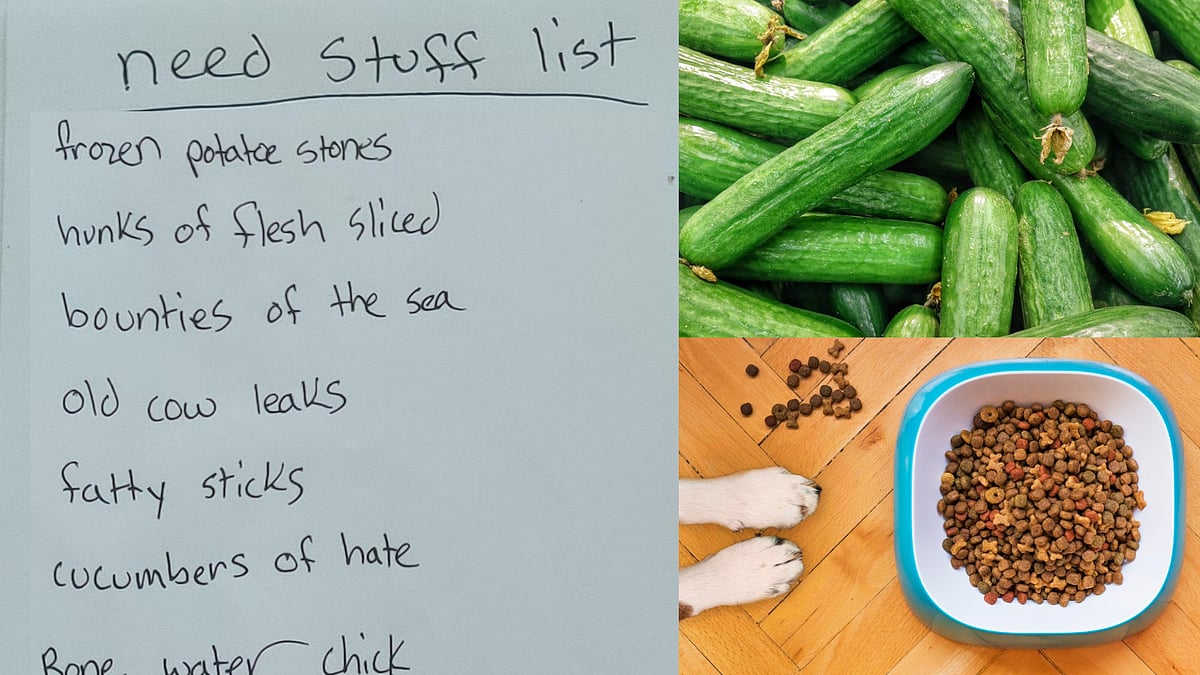 need stuff list
frozen potatoe stones
hunks of flesh sliced
bounties of the sea
old cow leaks
fatty sticks
cucumbers of hate
Bone water chick